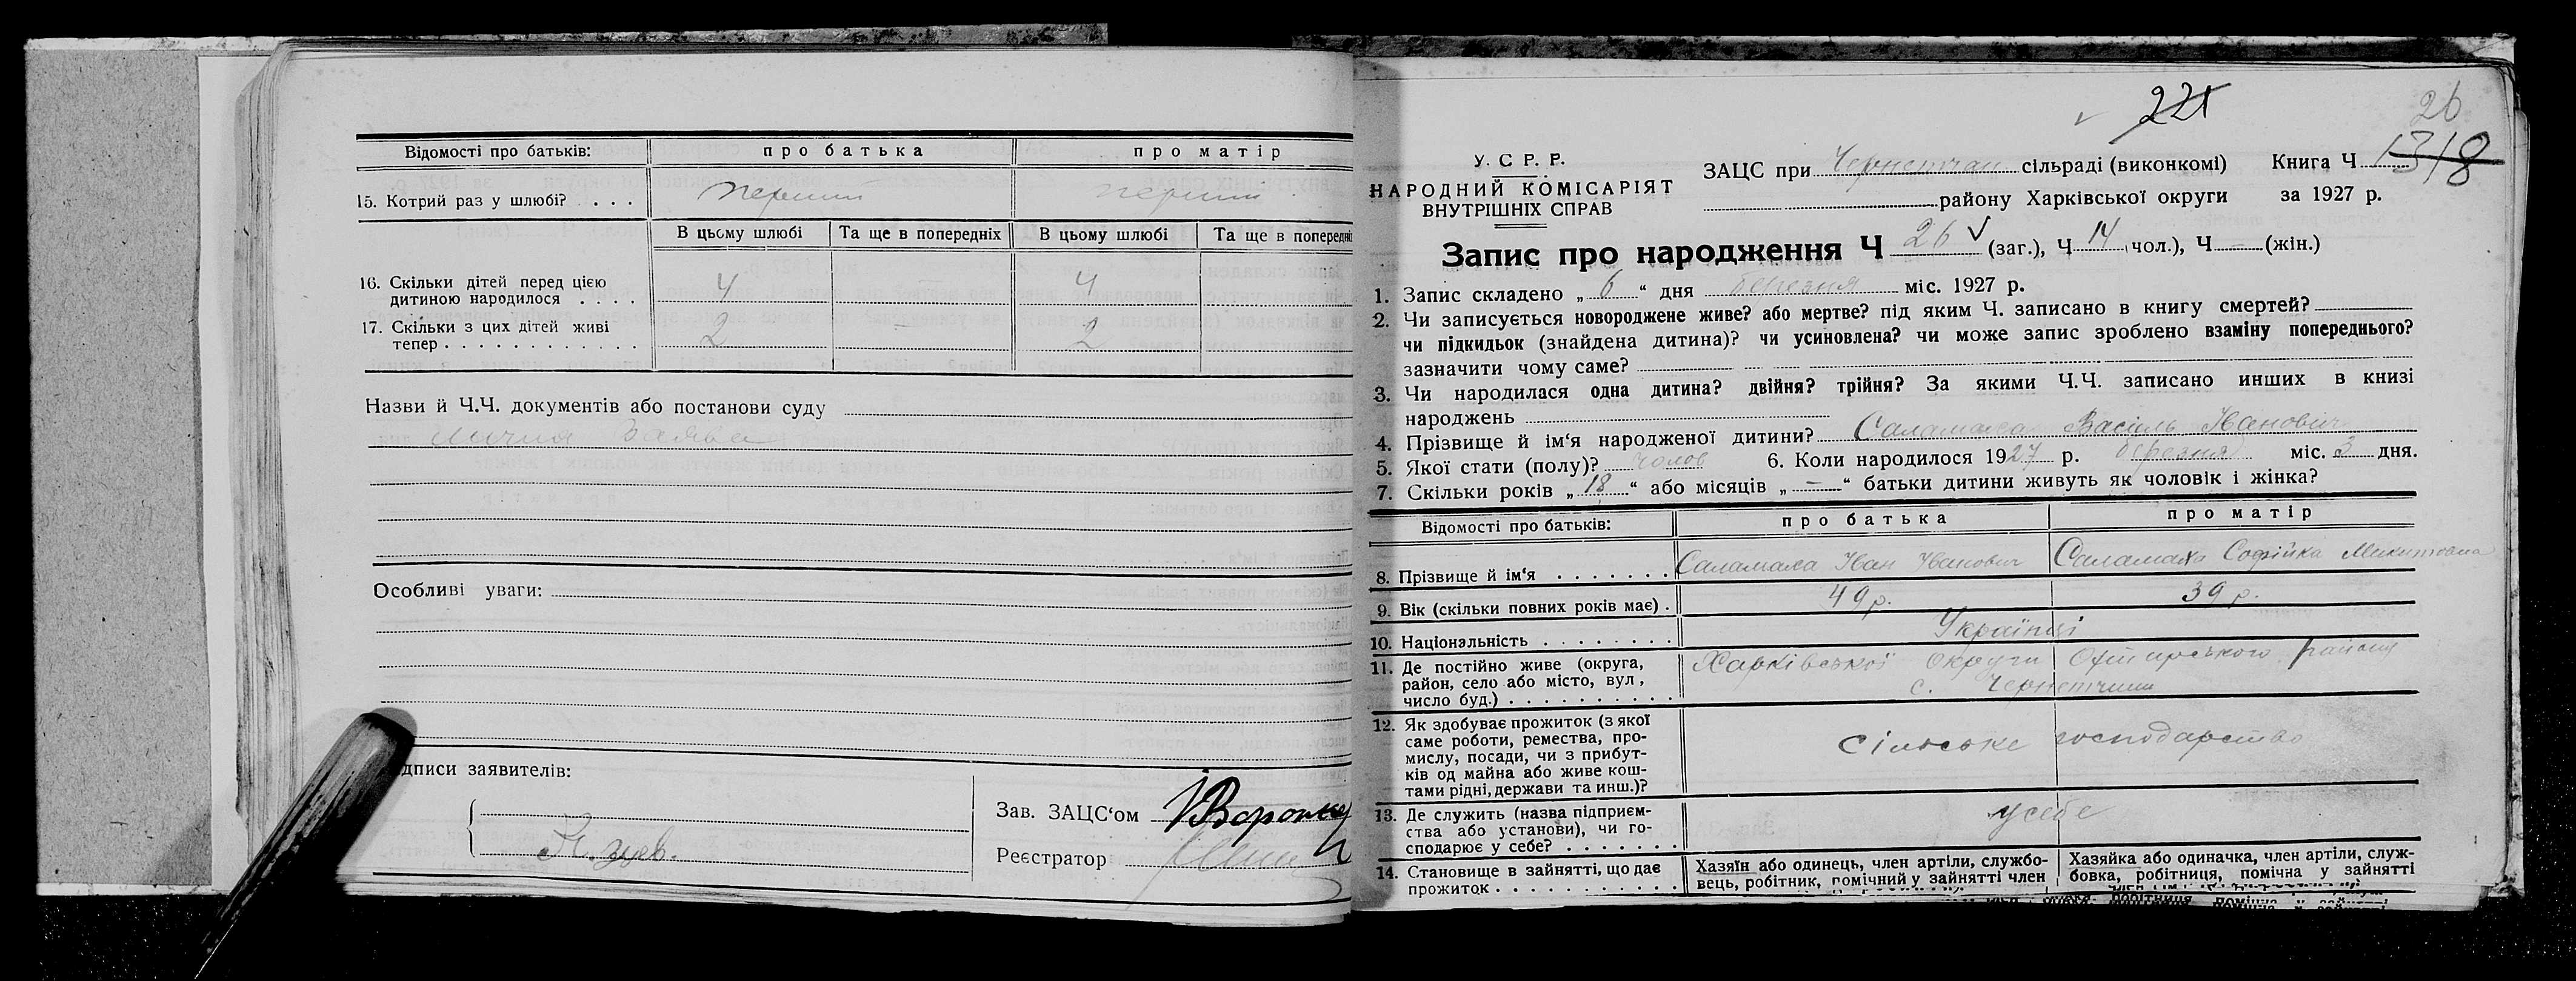 Відомості про батьків: про батька про матір
15. Котрий раз у шлюбі? . . . . перший перший
В цьому шлюбі Та ще в попередніх В цьому шлюбі Та ще в попередні
16. Скільки дітей перед цією
дитиною народилося . . . . 4 — 4
17. Скільки з цих дітей живі
тепер . . . . . . . . . . . . 2 — 2
Назви й Ч.Ч. документів або постанови суду
Лична заява
Особливі уваги:
дписи заявителів:
Зав. ЗАЦС‘ом
Реєстратор
221
26
1318
У. С. Р. Р.
НАРОДНИЙ КОМІСАРІЯТ
ВНУТРІШНІХ СПРАВ
ЗАЦС при сільраді (виконкомі) Книга Ч
району Харківської округи за 1927 р.
Запис про народження Ч 26 (заг.), Ч 14 чол.), Ч — (жін.)
1. Запис складено „ 6 “ дня березня міс. 1927 р.
2. Чи записується новороджене живе? або мертве? під яким Ч. записано в книгу смертей?
чи підкидьок (знайдена дитина)? чи усиновлена? чи може запис зроблено взаміну попереднього?
зазначити чому саме?
3. Чи народилася одна дитина? двійня? трійня? За якими Ч.Ч. записано инших в книзі
народжень
4. Прізвище й ім‘я народженої дитини? Саламаха Василь Іванович
5. Якої стати (полу)? чолов 6. Коли народилося 1927 р. березня міс. 3 дня.
7. Скільки років „ 18 “ або місяців „ — “ батьки дитини живуть як чоловік і жінка?
Відомості про батьків: про батька про матір
8. Прізвище й ім‘я . . . . . . . Саламаха Іван Іванович Саламаха Софійка Микитовна
9. Вік (скільки повних років має) . 49 р. 39 р.
10. Національність . . . . . . . . Українці
11. Де постійно живе (округа, Харківської округи Охтирського району
район, село або місто, вул, с.
число буд.) . . . . . . . . . .
12. Як здобуває прожиток (з якої
саме роботи, ремества, про-
мислу, посади, чи з прибут- сільське господарство
ків од майна або живе кош-
тами рідні, держави та инш.)?
13. Де служить (назва підприєм- у себе
ства або установи), чи го-
сподарює у себе? . . . . . . .
14. Становище в зайнятті, що дає Хазяїн або одинець, член артіли, службо- Хазяйка або одиначка, член артіли, служ-
прожиток . . . . . . . . . . . вець, робітник, помічний у зайнятті член бовка, робітниця, помічна у зайнятті